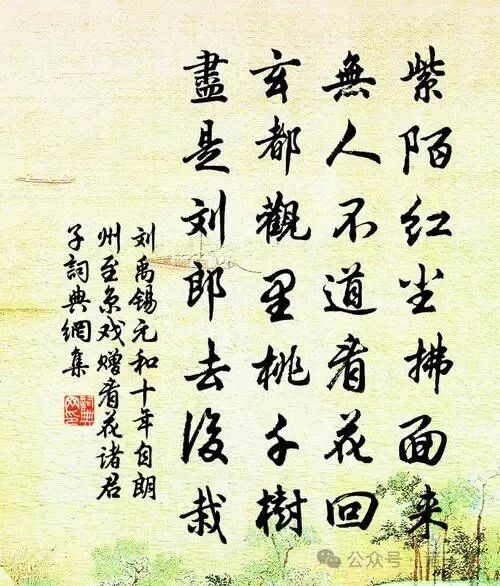 紫陌红尘拂面来
無人不道看花回
玄都觀里桃千樹
盡是刘郎去後栽
刘禹锡元和十年自朗
州至京戏赠看花诸君
子詞典網集
公众号